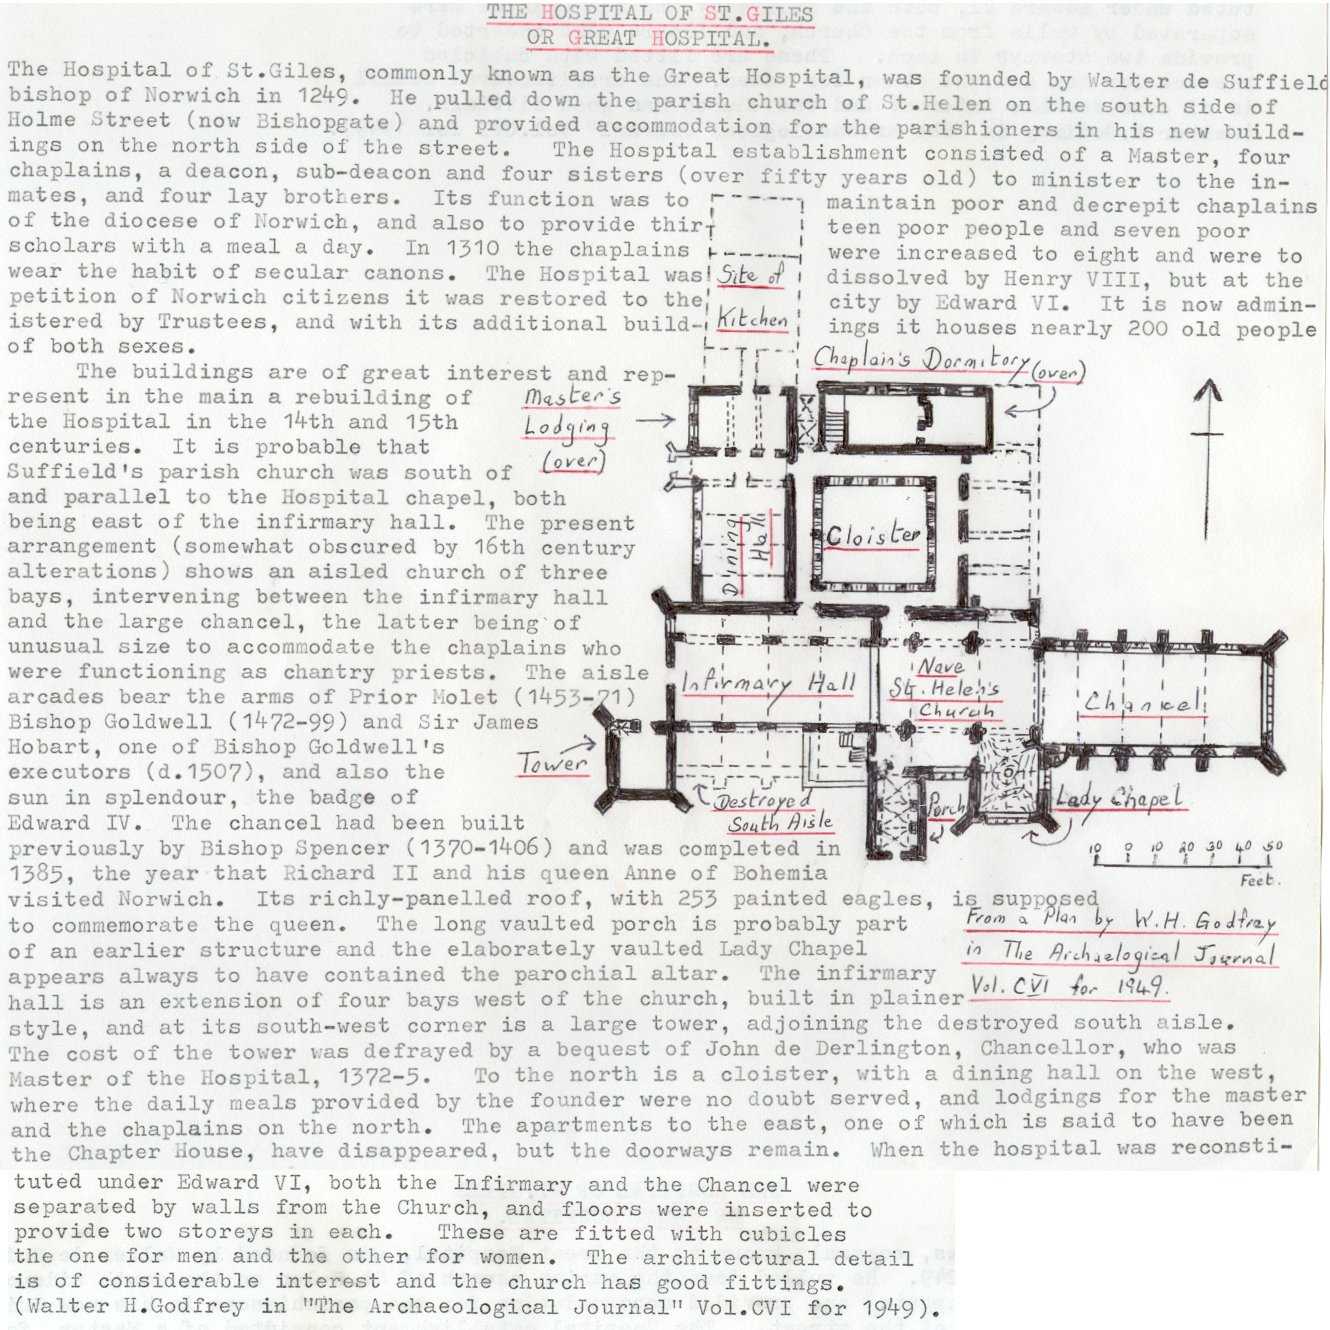 THE HOSPITAL OF ST.GILES
OR GREAT HOSPITAL.
The Hospital of St.Giles, commonly known as the Great Hospital, was founded by Walter de Suffield
bishop of Norwich in 1249. He pulled down the parish church of St.Helen on the south side of
Holme Street (now Bishopgate) and provided accommodation for the parishioners in his new build-
ings on the north side of the street. The Hospital establishment consisted of a Master, four
chaplains, a deacon, sub-deacon and four sisters (over fifty years old) to minister to the in-
mates, and four lay brothers. Its function was to maintain poor and decrepit chaplains
of the diocese of Norwich, and also to provide thir- teen poor people and seven poor
scholars with a meal a day. In 1310 the chaplains were increased to eight and were to
wear the habit of secular canons. The Hospital was dissolved by Henry VIII, but at the
petition of Norwich citizens it was restored to the city by Edward VI. It is now admin-
istered by Trustees, and with its additional build- ings it houses nearly 200 old people
of both sexes.
The buildings are of great interest and rep-
resent in the main a rebuilding of
the Hospital in the 14th and 15th
centuries. It is probable that
Suffield's parish church was south of
and parallel to the Hospital chapel, both
being east of the infirmary hall. The present
arrangement (somewhat obscured by 16th century
alterations) shows an aisled church of three
bays, intervening between the infirmary hall
and the large chancel, the latter being of
unusual size to accommodate the chaplains who
were functioning as chantry priests. The aisle
arcades bear the arms of Prior Molet (1453-71)
Bishop Goldwell (1472-99) and Sir James
Hobart, one of Bishop Goldwell's
executors (d.1507), and also the
sun in splendour, the badge of
Edward IV. The chancel had been built
previously by Bishop Spencer (1370-1406) and was completed in
1385, the year that Richard II and his queen Anne of Bohemia
visited Norwich. Its richly-panelled roof, with 253 painted eagles, is supposed
to commemorate the queen. The long vaulted porch is probably part
of an earlier structure and the elaborately vaulted Lady Chapel
appears always to have contained the parochial altar. The infirmary
hall is an extension of four bays west of the church, built in plainer
style, and at its south-west corner is a large tower, adjoining the destroyed south aisle.
The cost of the tower was defrayed by a bequest of John de Derlington, Chancellor, who was
Master of the Hospital, 1372-5. To the north is a cloister, with a dining hall on the west,
where the daily meals provided by the founder were no doubt served, and lodgings for the master
and the chaplains on the north. The apartments to the east, one of which is said to have been
the Chapter House, have disappeared, but the doorways remain. When the hospital was reconsti-
tuted under Edward VI, both the Infirmary and the Chancel were
separated by walls from the Church, and floors were inserted to
provide two storeys in each. These are fitted with cubicles
the one for men and the other for women. The architectural detail
is of considerable interest and the church has good fittings.
(Walter H.Godfrey in "The Archaeological Journal" Vol.CVI for 1949).
Site of
Kitchen
Chaplain's Dormitory (over)
Master's
Lodging
(over)
Dining
Hall
Cloister
Infirmary Hall
Nave
St. Helen's
Church
Chancel
Tower
Destroyed
South Aisle
Porch
Lady Chapel
10 0 10 20 30 40 50
Feet.
From a Plan by W.H. Godfrey
in The Archaelogical Journal
Vol. CVI for 1949.